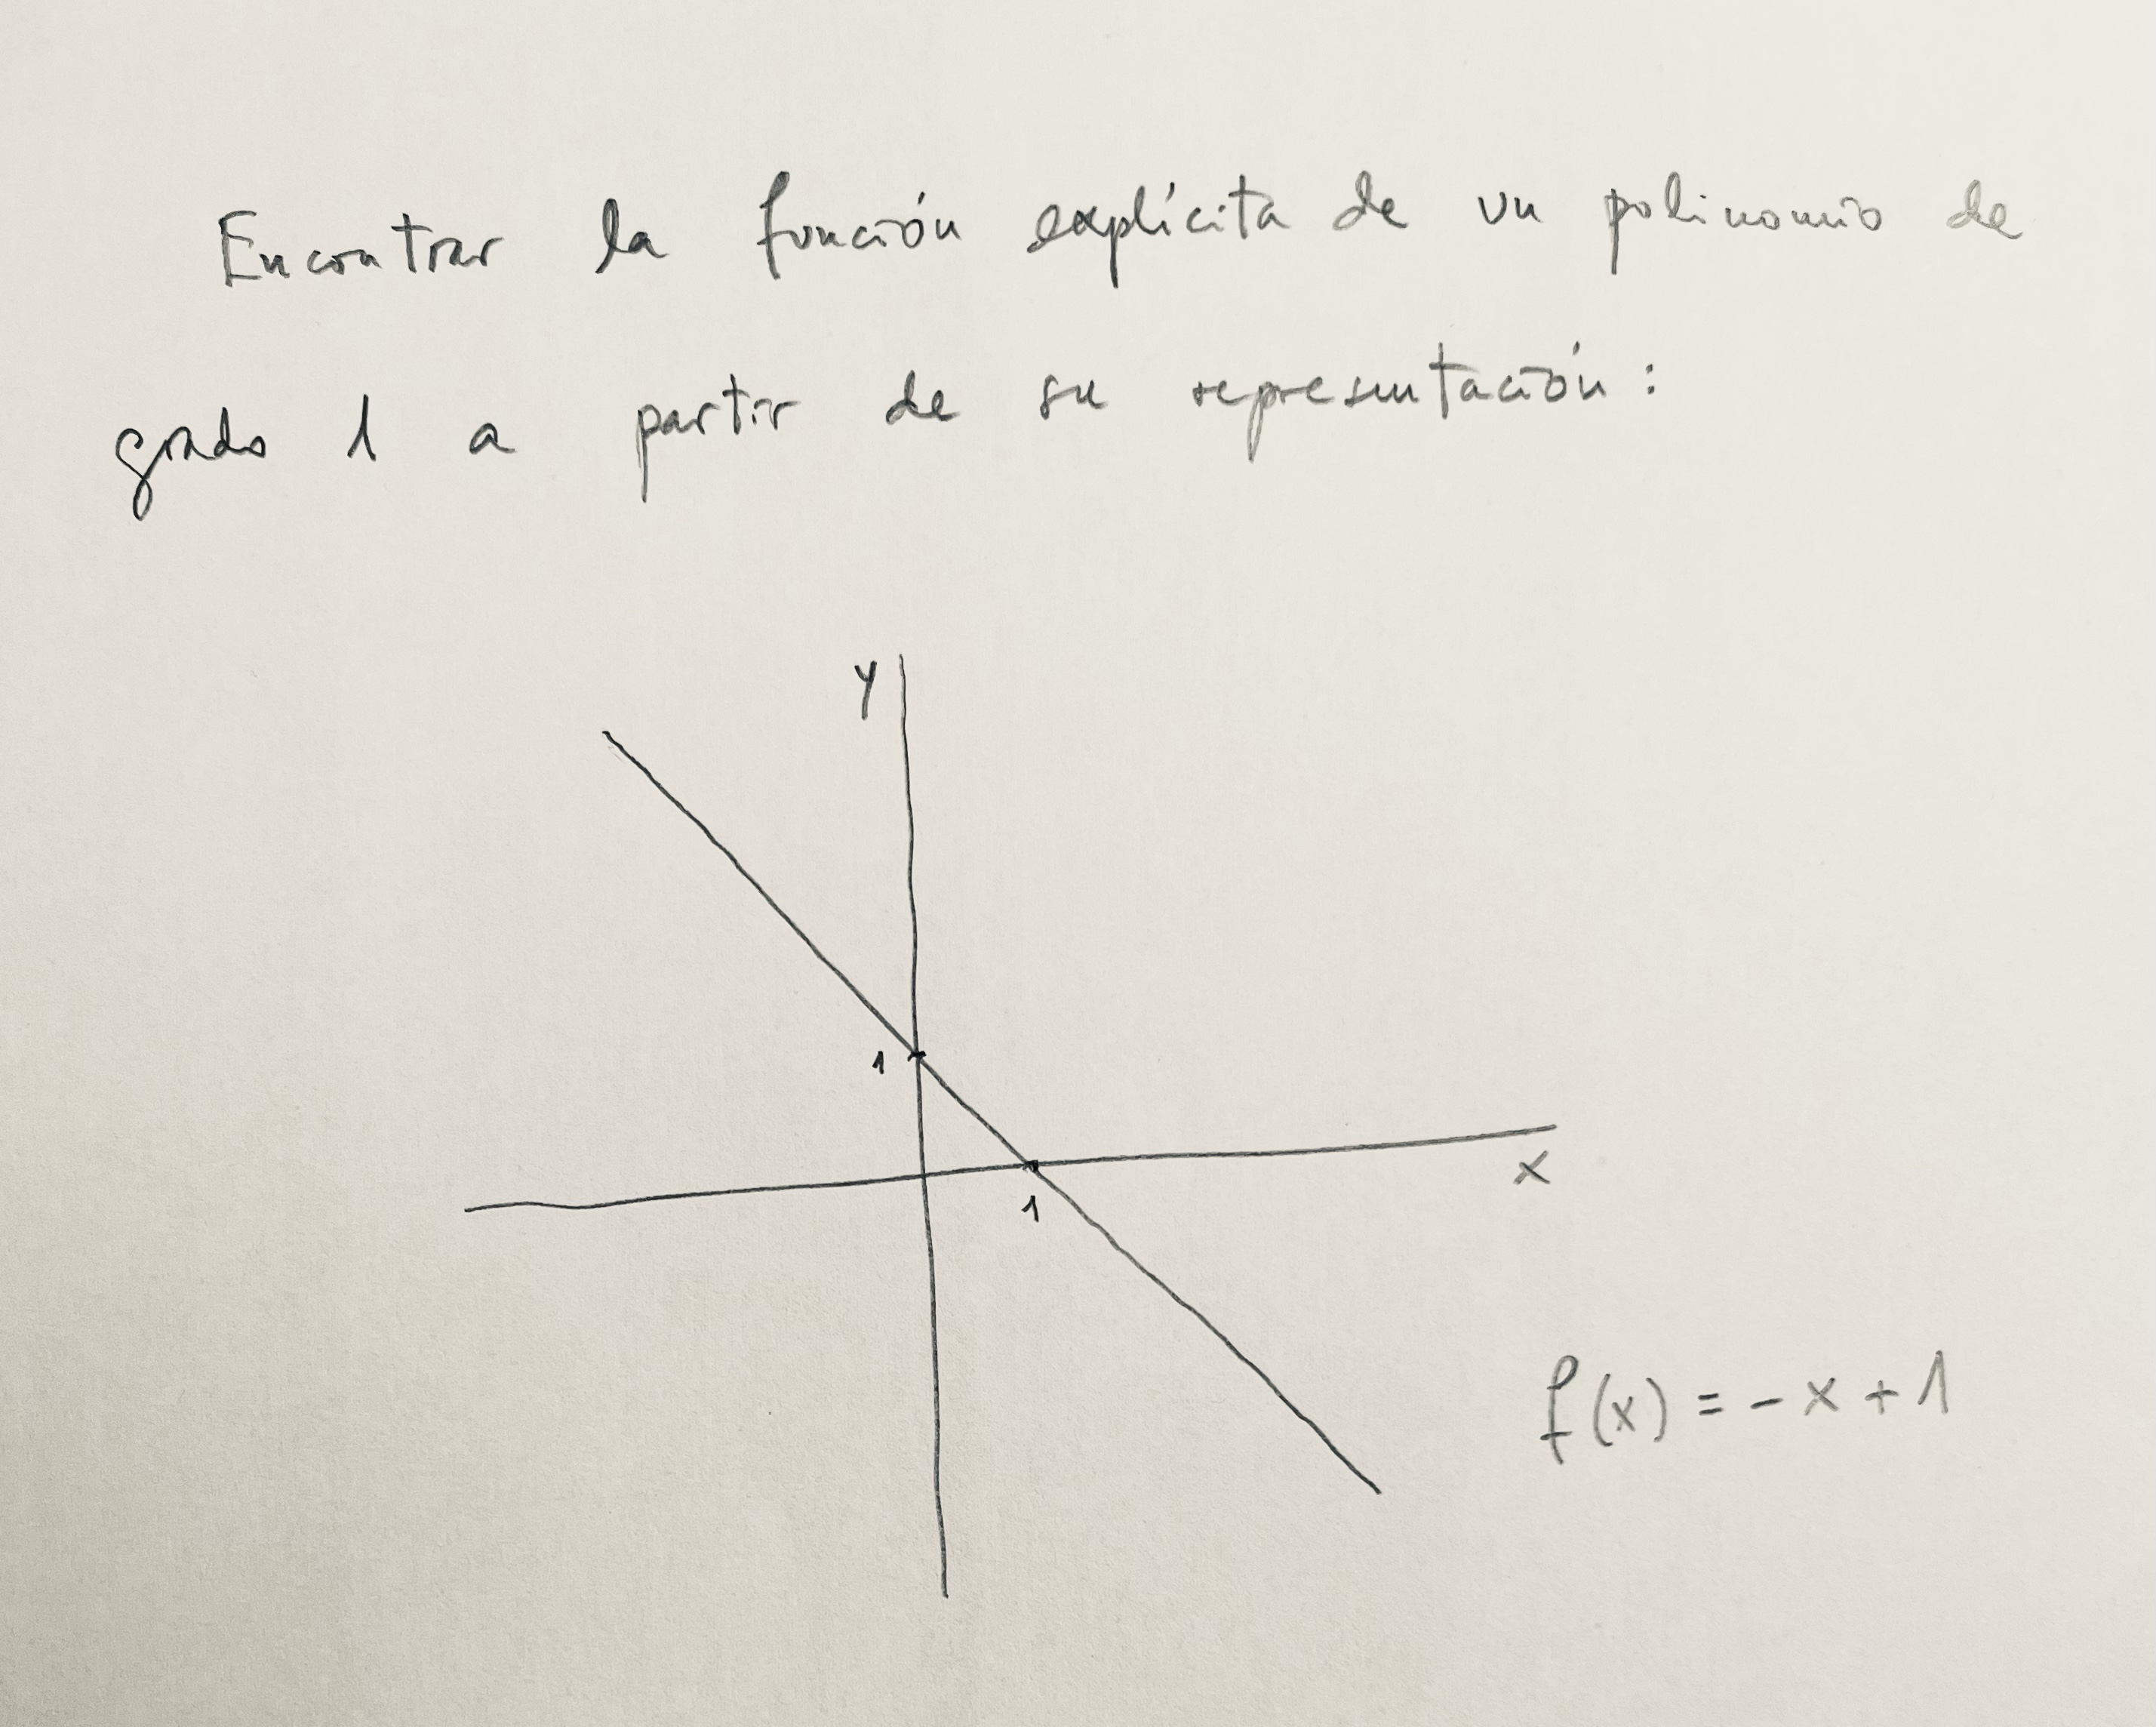 Encontrar la función explícita de un polinomio de
grado 1 a partir de su representación:
y
1
x
1
f(x) = -x+1